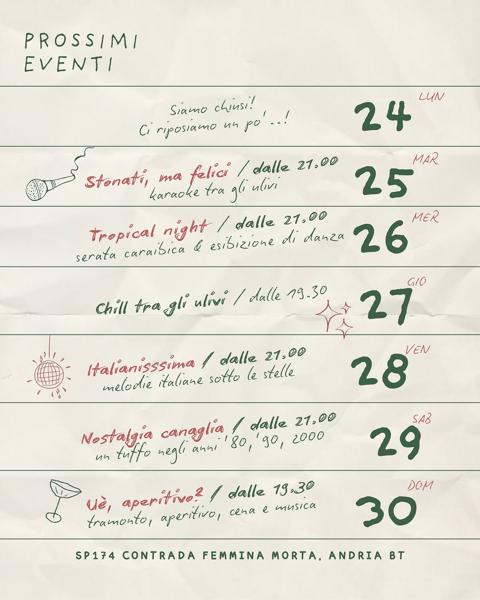 PROSSIMI
EVENTI
LUN
Siamo chiusi!
Ci riposiamo un po'..!
24
MAR
Stonati, ma felici / dalle 21.00
karaoke tra gli ulivi
25
MER
Tropical night / dalle 21.00
serata caraibica & esibizione di danza
26
GIO
Chill tra gli ulivi / dalle 19.30
27
VEN
Italianisssima / dalle 21.00
melodie italiane sotto le stelle
28
SAB
Nostalgia canaglia / dalle 21.00
un tuffo negli anni '80, '90, 2000
29
DOM
Uè, aperitivo? / dalle 19.30
tramonto, aperitivo, cena e musica
30
SP174 CONTRADA FEMMINA MORTA, ANDRIA BT